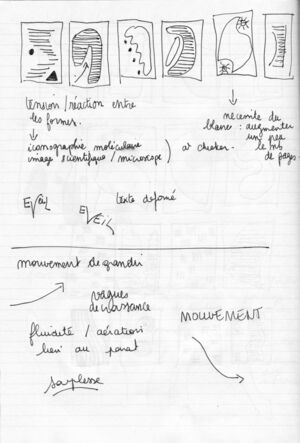 tension/réaction entre
les formes.
nécessite du
blanc : augmenter
un peu
le nb
de pages
iconographie moléculaire
image scientifique/microscope) à checker.
texte déformé
EVEIL
mouvement de grandir
vagues
de naissance
fluidité / aération
MOUVEMENT
souplesse